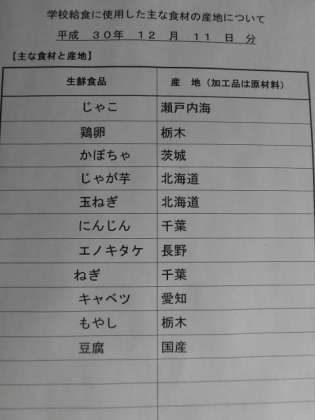 学校給食に使用した主な食材の産地について
平成 30年 12 月 11 日 分
【主な食材と産地】
生鮮食品 産 地（加工品は原材料）
じゃこ 瀬戸内海
鶏卵 栃木
かぼちゃ 茨城
じゃが芋 北海道
玉ねぎ 北海道
にんじん 千葉
エノキタケ 長野
ねぎ 千葉
キャベツ 愛知
もやし 栃木
豆腐 国産